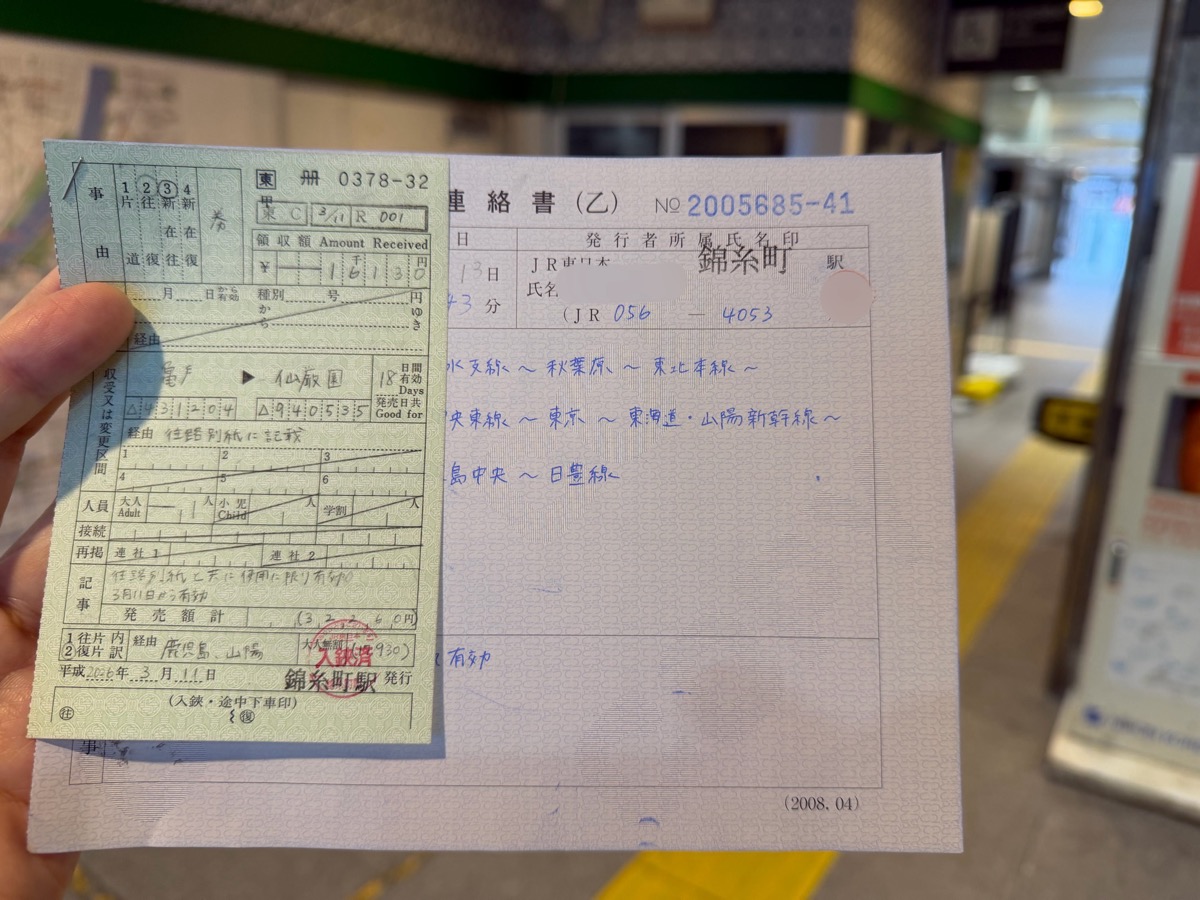 事由
1片道
2往復
3新在往
4新在復
券
東 冊 0378-32
東 C 3/11 R 001
領収額 Amount Received
¥ 1 6 1 3 0 千 円
月 日から有効 種別 号 から 円ゆき
経由
収受又は変更区間
亀戸 ▶ 仙巌園
18日間有効 Days
発売日共 Good for
△431204 △940535
経由 往路別紙に記載
1 2 3
4 5 6
人員 大人 Adult 1人 小児 Child 人 学割 人
接続
再掲 連社1 連社2
記事
往路別紙と共に使用に限り有効
3月11日から有効
発売額計 (32,260円)
1往片 2復片 内訳 経由 鹿児島、山陽 大人無割
入鋏済
平成2026年3月11日 錦糸町駅 発行
(入鋏・途中下車印)
往 復
連絡書 (乙) No 2005685-41
日 発行者所属氏名印
13日 JR東日本 錦糸町 駅
氏名
43分 (JR 056 — 4053
水支線 ~ 秋葉原 ~ 東北本線 ~
央東線 ~ 東京 ~ 東海道・山陽新幹線 ~
島中央 ~ 日豊線
有効
事
(2008.04)